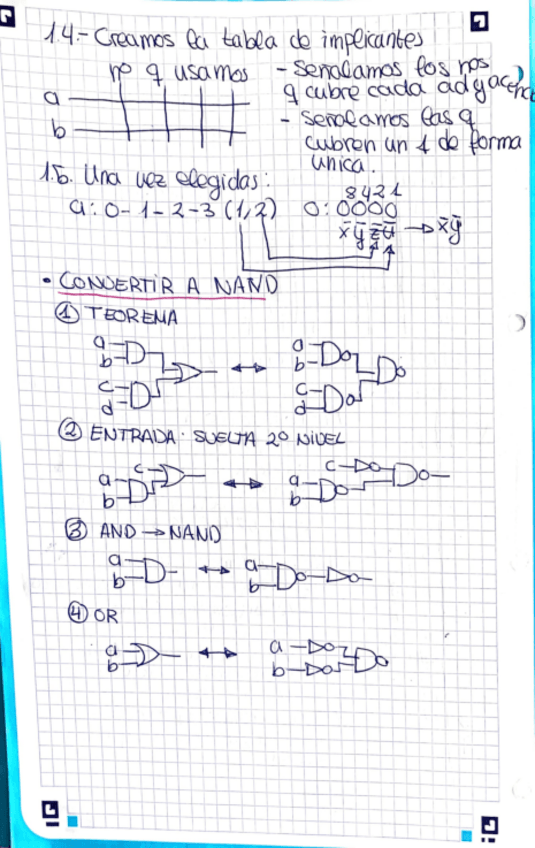 1.4.- Creamos la tabla de implicantes
nº q usamos
- Señalamos los nos
q cubre cada adyacencia
a
b
- Señalamos las q
cubren un 1 de forma
única.
1.5. Una vez elegidas:
a: 0-1-2-3 (1,2)
8421
0: 0000
x̄ ȳ z̄ ū → x̄ȳ
• CONVERTIR A NAND
① TEOREMA
a
b
c
d
↔
a
b
c
d
② ENTRADA SUELTA 2º NIVEL
c
a
b
↔
c
a
b
③ AND → NAND
a
b
↔
a
b
④ OR
a
b
↔
a
b